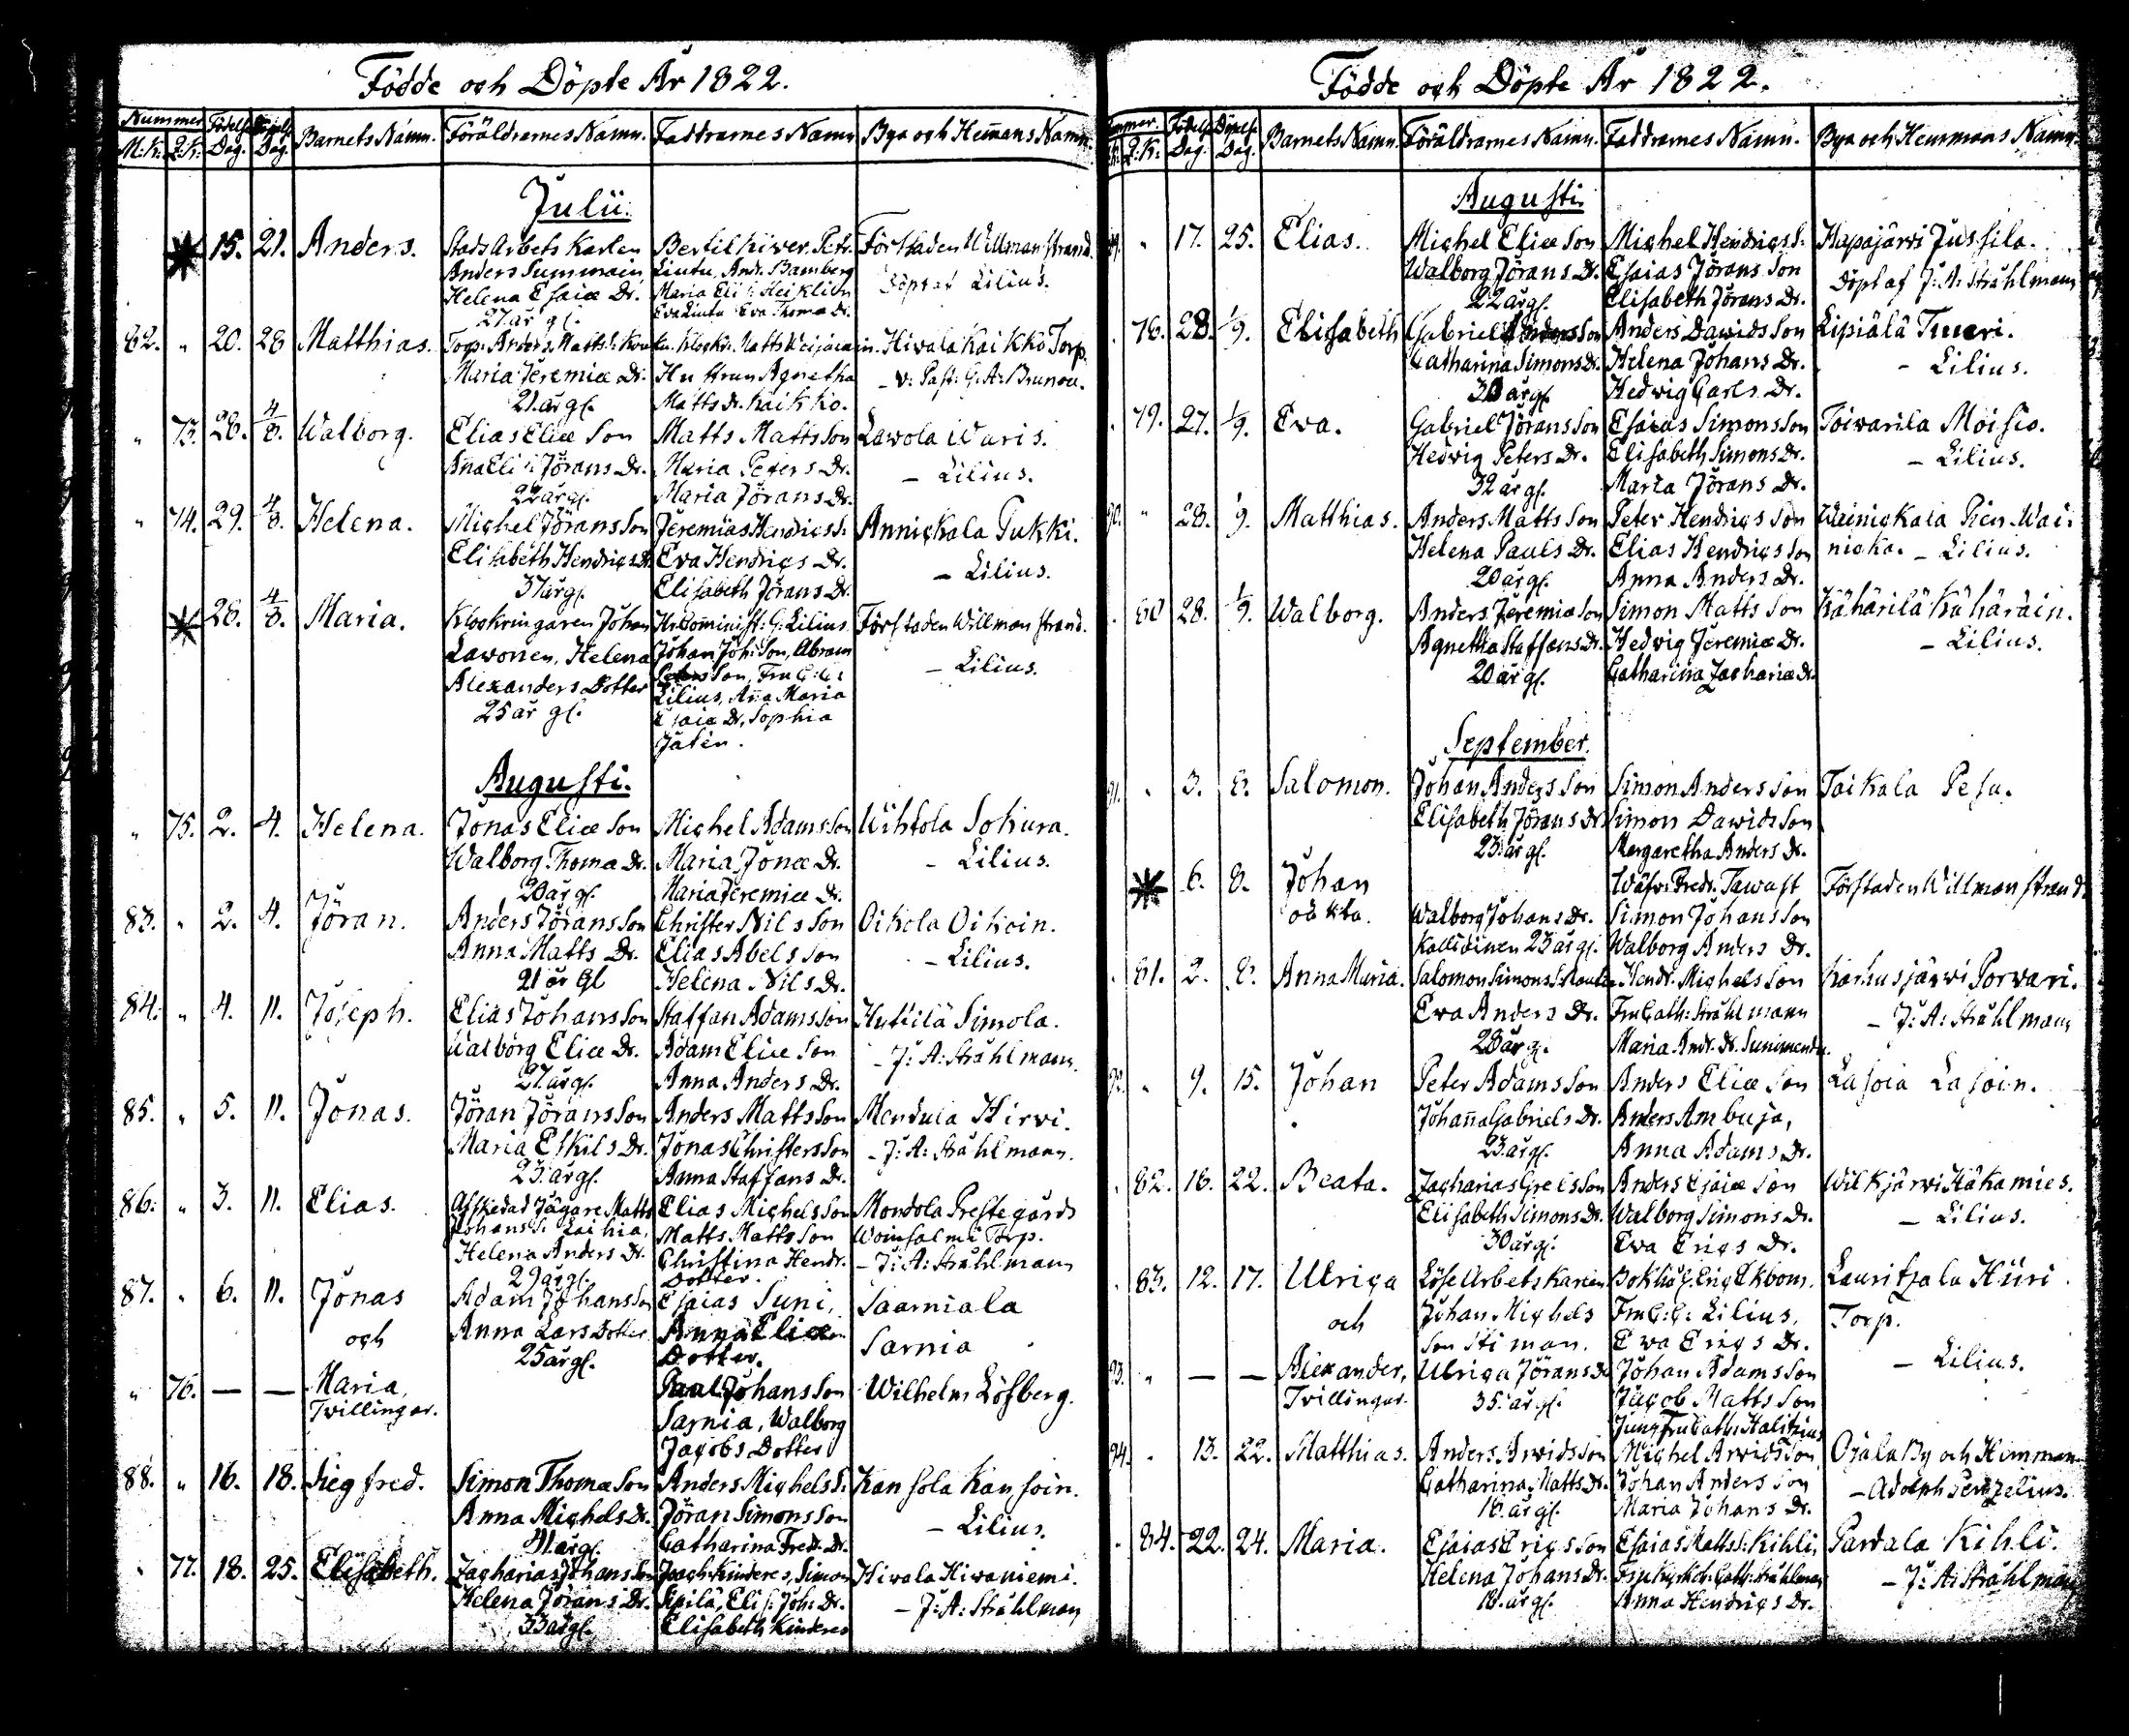 Födde och Döpte År 1822.
Nummer Födelse Döpelse Barnets Namn. Föräldrarnes Namn. Faddrarnes Namn Bya och Hem̄ans Namn.
M.K: Q:K: Dag. Dag.
Julii.
15. 21. Anders. Stads Arbets Karlen Bertil Hiver. Petr. Förstaden Willmanstrand.
Anders Summain Lintu, And. Bamberg Döpt af Lilius.
Helena Esaiæ Dr. Maria Eli
27 år gl. Eva Lintu Eva Thomæ Dr.
82. " 20. 28 Matthias. Torp: Anders Matts S: Hivala Kaikko Torp.
Maria Jeremiæ Dr. Hustrun Agnetha – v: Past: G: A: Brunou.
21. år gl. Matts Dr. Kaikko.
" 73. 28. 4/8. Walborg. Elias Eliæ Son Matts Matts Son Lawola Waris.
Jörans Dr. Maria Peters Dr. – Lilius.
22 år gl. Maria Jörans Dr.
" 74. 29. 4/8. Helena. Michel Jörans Son Jeremias Hendrics S: Annickala Pukki.
Elisabeth Hendrics Dr Eva Hendrics Dr. – Lilius.
37 år gl. Elisabeth Jörans Dr.
28. 4/8. Maria. Klockringaren Johan Hr Com̄inist: G: Lilius. Förstaden Willmanstrand.
Lavonen, Helena Johan Joh: Son, Abram – Lilius.
Alexanders Dotter Peters Son, Fru
25 år gl. Lilius, An̄a Maria
Esaiæ Dr, Sophia
Jatin.
Augusti.
" 75. 2. 4. Helena. Jonas Eliæ Son Michel Adams Son Wihtola Sohura.
Walborg Thomæ Dr. Maria Jonæ Dr. – Lilius.
20 år gl. Maria Jeremiæ Dr.
83. " 2. 4. Jöran. Anders Jörans Son Christer Nils Son Oikola Oikoin.
Anna Matts Dr. Elias Abels Son – Lilius.
21 år gl Helena Nils Dr.
84. " 4. 11. Joseph. Elias Johans Son Staffan Adams Son Huttilä Simola.
Walborg Eliæ Dr. Adam Eliæ Son – J: A: Stråhlmann.
27. år gl. Anna Anders Dr.
85. " 5. 11. Jonas. Jöran Jörans Son Anders Matts Son Mendula Hirvi.
Maria Eskils Dr. Jonas Christers Son – J: A: Stråhlmann.
23. år gl. Anna Staffans Dr.
86. " 3. 11. Elias. Afskedad Jägare Matts Elias Michels Son Mondola Prestegårds
Johans S: Laihia, Matts Matts Son Woinsalmi Torp.
Helena Anders Dr. Christina Hendr. – J: A: Stråhlmann
29 år gl. Dotter.
87. " 6. 11. Jonas Adam Johans Son Esaias Suni, Saarniala
och Anna Lars Dotter Anna Eliæ Sarnia
25 år gl. Dotter.
" 76. — — Maria, Paul Johans Son Wilhelm Löfberg.
Tvillingar. Sarnia, Walborg
Jacobs Dotter
88. " 16. 18. Siegfred. Simon Thomæ Son Anders Michels S. Kansola Kansoin.
Anna Michels Dr. Jöran Simons Son – Lilius.
år gl. Catharina Fredr. Dr.
" 77. 18. 25. Elisabeth. Zacharias Johans Son Zach: Kinderes, Simon Hivala Hivaniemi.
Helena Jörans Dr. Sipilä, Elis: Joh: Dr. – J: A: Stråhlman
33 år gl. Elisabeth Kinderes
Födde och Döpte År 1822.
Q: K: Födelse Dag. Döpelse Dag. Barnets Namn. Föräldrarnes Namn. Faddrarnes Namn. Bya och Hemmans Namn.
Augusti.
" 17. 25. Elias. Michel Eliæ Son Michel Hendrics S: Hapajärvi Jussila.
Walborg Jörans Dr. Esaias Jörans Son Döpt af J: A: Stråhlmann
22 år gl. Elisabeth Jörans Dr.
78. 28. 1/9. Elisabeth Gabriel Anders Son Anders Davids Son Lipiälä Tuuri.
Catharina Simons Dr. Helena Johans Dr. – Lilius.
30 år gl. Hedwig Carls Dr.
79. 27. 1/9. Eva. Gabriel Jörans Son Esaias Simons Son Toivarila Moisio.
Hedvig Peters Dr. Elisabeth Simons Dr. – Lilius.
32 år gl. Maria Jörans Dr.
90. " 28. 1/9. Matthias. Anders Matts Son Peter Hendrics Son Weinickala Pien Wai-
Helena Pauls Dr. Elias Hendrics Son nicka. – Lilius.
20 år gl. Anna Anders Dr.
80 28. 1/9. Walborg. Anders Jeremiæ Son Simon Matts Son Kähärilä Kähäräin.
Agnetha Staffans Dr. Hedvig Jeremiæ Dr. – Lilius.
20 år gl. Catharina Zachariæ Dr.
September.
91. " 3. 8. Salomon. Johan Anders Son Simon Anders Son Taikala Pesu.
Elisabeth Jörans Dr Simon Davids Son
23. år gl. Margaretha Anders Dr.
6. 8. Johan Fredr. Tawast Förstaden Willmanstrand.
oäkta. Walborg Johans Dr. Simon Johans Son
Kollidinen 23 år gl. Walborg Anders Dr.
81. 2. 8. Anna Maria. Salomon Simons S. Hendr. Michels Son Karhusjärvi Porvari.
Eva Anders Dr. Fru Cath: Stråhlmann – J: A: Stråhlmann
20 år gl. Maria Andr. Dr.
92. " 9. 15. Johan Peter Adams Son Anders Eliæ Son Lasoia Lasoin.
Johan̄a Gabriels Dr. Anders Ambuja,
23. år gl. Anna Adams Dr.
82. 16. 22. Beata. Zacharias Grels Son Anders Esaiæ Son Wilkjärvi Häkamies.
Elisabeth Simons Dr. Walborg Simons Dr. – Lilius.
30 år gl. Eva Erics Dr.
83. 12. 17. Ulrica Löse Arbets Karlen Bokh: Eric Ekbom, Lauritsala Hiiri
och Johan Michels Fru Lilius, Torp.
Son Stiman. Eva Erics Dr. – Lilius.
93. " — — Alexander, Ulrica Jörans Dr Johan Adams Son
Tvillingar. 35. år gl. Jacob Matts Son
Jungfru Cath:
94. " 13. 22. Matthias. Anders Arvids Son Michel Arvids Son Ojala By och Hemman.
Catharina Matts Dr. Johan Anders Son – Adolph Serzelius.
16. år gl. Maria Johans Dr.
84. 22. 24. Maria. Esaias Erics Son Esaias Matts S: Kihli, Pardala Kihli.
Helena Johans Dr. Fru Cath: Stråhlman – J: A: Stråhlmann
18. år gl. Anna Hendrics Dr.